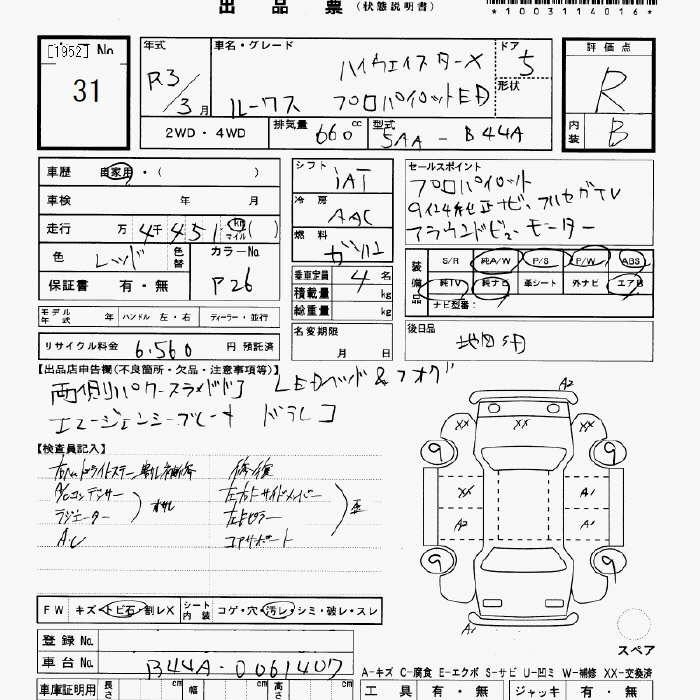 出品票(状態説明書)
*1003114016*
[1952] No
31
年式 R3/3月
車名・グレード ハイウェイスターX
ルークス プロパイロットED
ドア 5
形状
評価点 R
内装 B
2WD・4WD 排気量 660 cc 型式 5AA-B44A
車歴 自家用・( )
車検 年 月
走行 万 4千451 km マイル ( )
色 レッド 色替 カラーNo P26
保証書 有・無
シフト IAT
冷房 AAC
燃料 ガソリン
乗車定員 4 名
積載量 kg
総重量 kg
セールスポイント
プロパイロット
9インチ純正ナビ、フルセグTV
アラウンドビューモーター
装備品 S/R 純A/W P/S P/W ABS
純TV 純ナビ 革シート 外ナビ エアB
ナビ型番:
モデル年式 年 ハンドル 左・右 ディーラー・並行
名変期限 月 日
後日品
リサイクル料金 6,560 円 預託済
【出品店申告欄(不良箇所・欠品・注意事項等)】
両側パワースライドドア LEDヘッド&フォグ
エマージェンシーブレーキ ドラレコ
A2
【検査員記入】
A/Cコンデンサー
ラジエーター
修復
左右サイドメンバー
左Fピラー
コアサポート
XX XX XX
9 9
XX A1
A2 A1
9 9
A1
スペア
FW キズ・トビ石・割レX シート内装 コゲ・穴・汚レ・シミ・破レ・スレ
登録No.
車台No. B44A-0061407
A-キズ C-腐食 E-エクボ S-サビ U-凹ミ W-補修 XX-交換済
車庫証明用 長さ cm 幅 cm 高さ cm
工具 有・無 ジャッキ 有・無